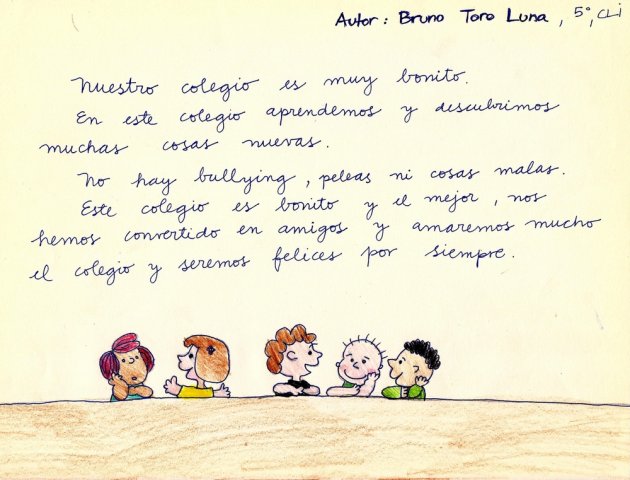 Autor: Bruno Toro Luna, 5°, CLi
Nuestro colegio es muy bonito.
En este colegio aprendemos y descubrimos
muchas cosas nuevas.
No hay bullying, peleas ni cosas malas.
Este colegio es bonito y el mejor, nos
hemos convertido en amigos y amaremos mucho
el colegio y seremos felices por siempre.